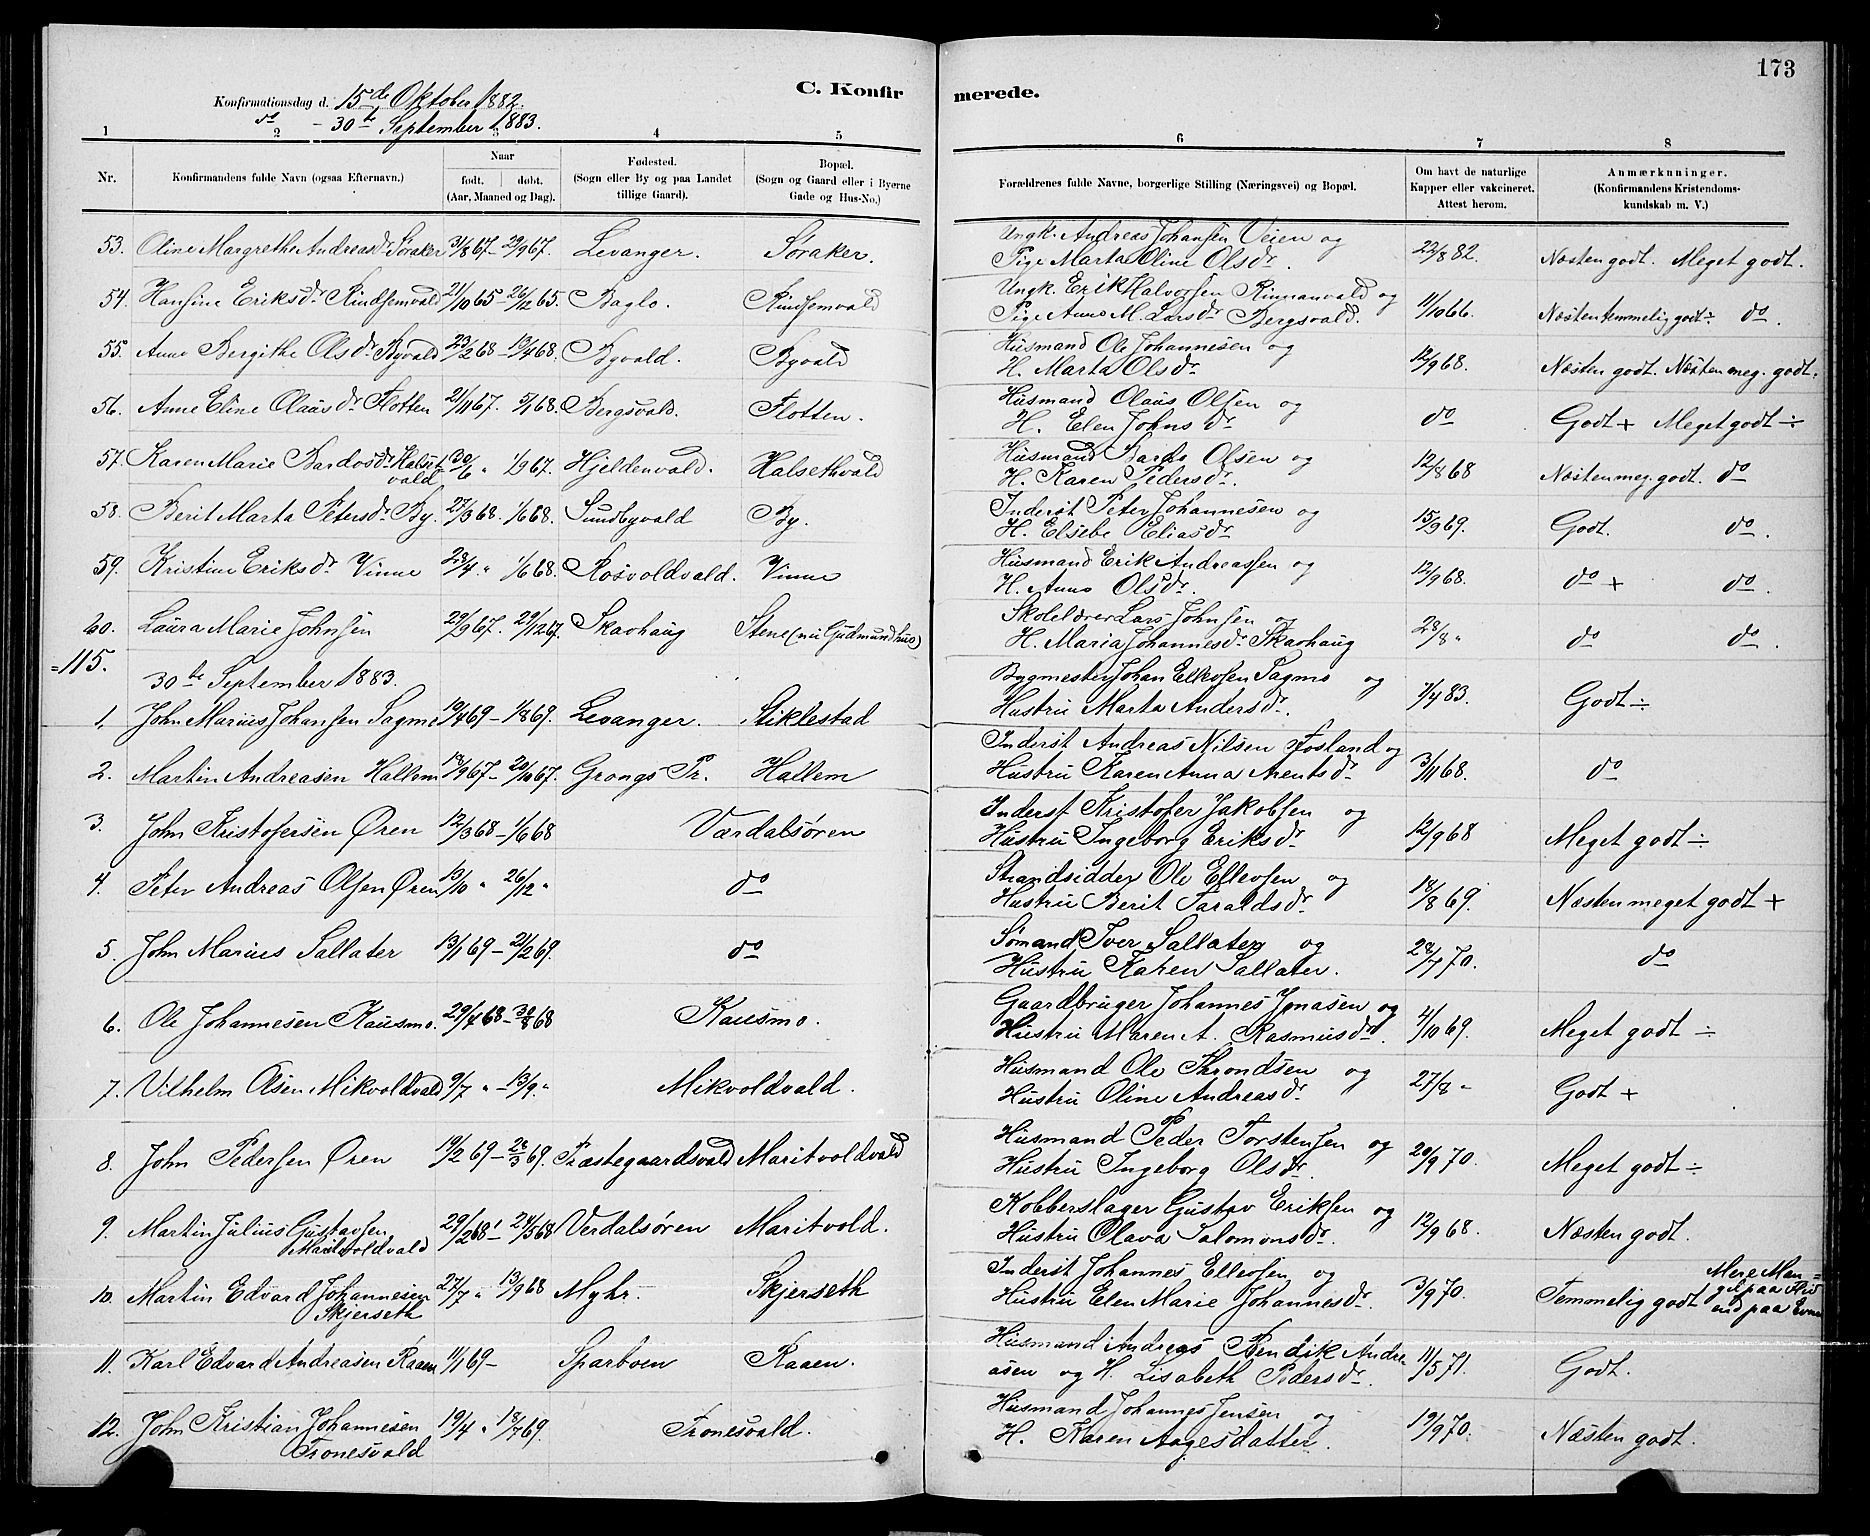 173
Konfirmationsdag d. 15de Oktober 1882.
do - 30te September 1883.
C. Konfirmerede.
1 2 3 4 5 6 7 8
Nr. Konfirmandens fulde Navn (ogsaa Efternavn.) Naar født. døbt. (Aar, Maaned og Dag.) Fødested. (Sogn eller By og paa Landet tillige Gaard). Bopæl. (Sogn og Gaard eller i Byerne Gade og Hus-No.) Forældrenes fulde Navne, borgerlige Stilling (Næringsvei) og Bopæl. Om havt de naturlige Kapper eller vakcineret. Attest herom. Anmærkninger. (Konfirmandens Kristendomskundskab m. V.)
53. Oline Margrethe Andreasdr Søraker 31/8 67 - 29/9 67. Levanger. Søraker. Ungk. Andreas Johansen Veien og
Pige Marta Oline Olsdr. 22/8 82. Næsten godt. Meget godt.
54. Hansine Eriksdr Rindsemvald 21/10 65 - 26/12 65. Baglo. Rindsemvald Ungk. Erik Halvorsen Rinnanvald og
Pige Anne M. Larsdr Bergsvald. 11/10 66. Næsten temmelig godt ÷ do.
55. Ane Bergithe Olsdr Byvald 23/2 68 - 13/4 68. Byvald. Byvald Husmand Ole Johannesen og
H. Marta Olsdr 12/9 68. Næsten godt. Næsten meg. godt.
56. Anne Eline Olausdr Flotten 21/11 67. 5/1 68. Bergsvald. Flotten. Husmand Olaus Olsen og
H. Elen Johnsdr do Godt + Meget godt ÷
57. Karen Marie Bardosdr Halset
vald 30/6 " 1/9 67. Hjeldenvald. Halsethvald Husmand Bardo Olsen og
H. Karen Pedersdr. 12/8 68 Næsten meg. godt. do
58. Berit Marta Petersdr By. 27/3 68. 1/6 68. Sundbyvald By. Inderst Peter Johannesen og
H. Elsebe Eliasdr 15/9 69. Godt. do.
59. Kristine Eriksdr Vinne 28/4 " 1/6 68. Rosvoldvald. Vinne Husmand Erik Andreassen og
H. Anne Olsdr. 12/9 68. do + do.
60. Laura Marie Johnsen 29/9 67. 29/12 67. Skavhaug Stene (nu Gudmundhus) Skolelærer Lars Johnsen og
H. Maria Johannesdr Skavhaug 28/8 " do do.
=115.
30te September 1883.
1. John Marius Johansen Sagmo 10/4 69 - 1/8 69. Levanger. Stiklestad Bygmester Johan Ellevsen Sagmo og
Hustru Marta Andersdr. 7/4 83. Godt ÷
2. Martin Andreasen Hallem 18/9 67 - 20/10 67. Grongs Pr. Hallem Inderst Andreas Nilsen Fosland og
Hustru Karen Anna Arentsdr 3/11 68. do
3. John Kristofersen Øren 12/3 68 - 1/6 68 Værdalsøren Inderst Kristofer Jakobsen og
Hustru Ingeborg Eriksdr 12/9 68 Meget godt ÷
4. Peter Andreas Olsen Øren 13/10 " 26/12 " do Strandsidder Ole Ellevsen og
Hustru Berit Taraldsdr 18/8 69. Næsten meget godt +
5. John Marius Sallater 13/1 69 - 21/2 69. do Sømand Iver Sallater og
Hustru Karen Sallater. 28/7 70. do
6. Ole Johannesen Kausmo. 29/7 68 - 30/8 68 Kausmo. Gaardbruger Johannes Jonasen og
Hustru Maren A. Rasmusdr. 4/10 69. Meget godt ÷
7. Vilhelm Olsen Mikvoldvald 9/7 " - 13/9 " Mikvoldvald. Husmand Ole Throndsen og
Hustru Oline Andreasdr 27/8 " Godt +
8. John Pedersen Øren 19/2 69 - 28/3 69. Præstegaardsvald Maritvoldvald Husmand Peder Torstensen og
Hustru Ingeborg Olsdr. 20/9 70. Meget godt ÷
9. Martin Julius Gustavsen
Maritvoldvald 29/2 68 - 24/5 68 Verdalsøren Maritvold. Kobberslager Gustav Eriksen og
Hustru Olava Salomonsdr. 12/9 68. Næsten godt.
10. Martin Edvard Johannesen
Skjerseth 27/7 " 13/9 68 Myhr. Skjerseth Inderst Johannes Ellevsen og
Hustru Elen Marie Johannesdr. 3/9 70. Temmelig godt Mere Man=
gel paa Flid
end paa Evne
11. Karl Edvard Andreasen Raaen 11/1 69 - Sparboen Raaen. Husmand Andreas Bendik Andre=
asen og H. Lisabeth Pedersdr. 11/5 71. Godt.
12. John Kristian Johannesen
Tronesvald 19/4 " 18/7 69. Tronesvald. Husmand Johannes Jensen og
H. Karen Aagesdatter. 19/9 70. Næsten godt.